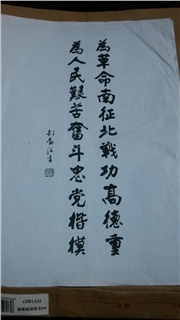 為革命南征北戰功高德重
為人民艱苦奮斗忠党楷模